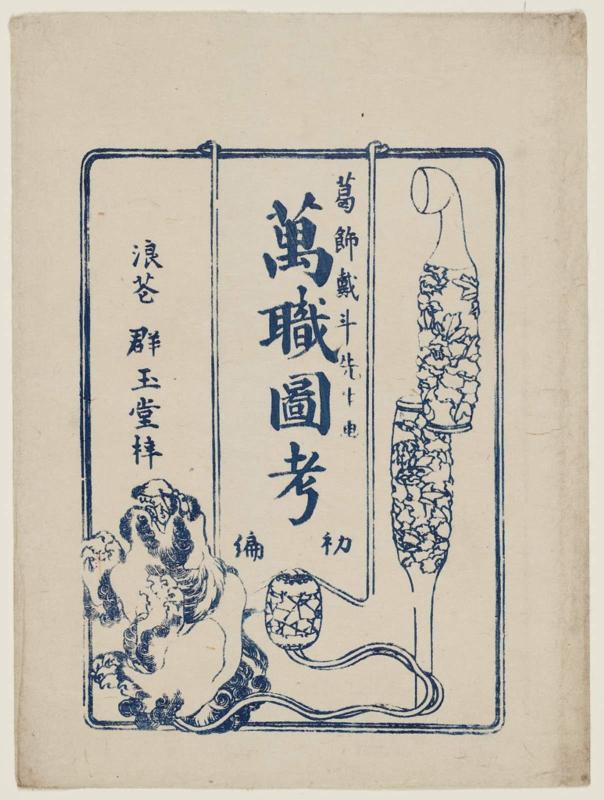 葛飾戴斗先生画
萬職圖考
初編
浪花 群玉堂梓